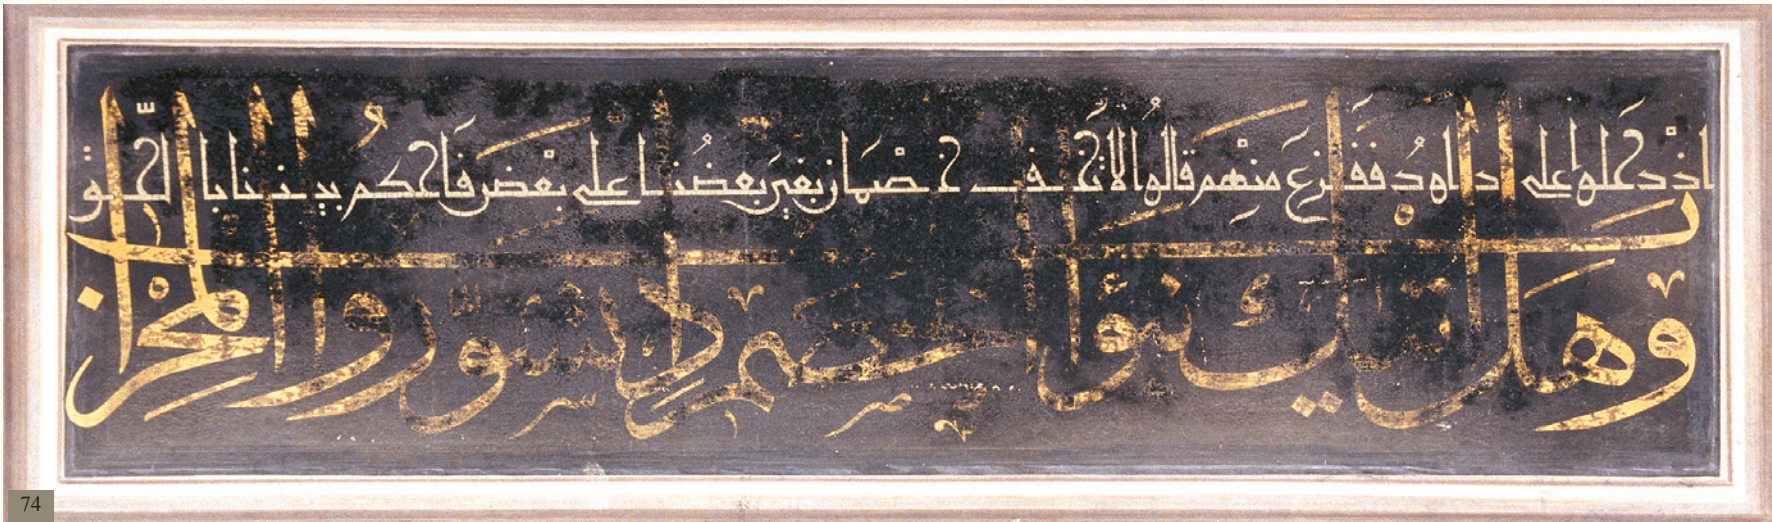 اذ دخلوا على داود ففزع منهم قالوا لا تخف خصمان بغى بعضنا على بعض فاحكم بيننا بالحق
وهل اتيك نبؤا الخصم اذ تسوروا المحراب
74